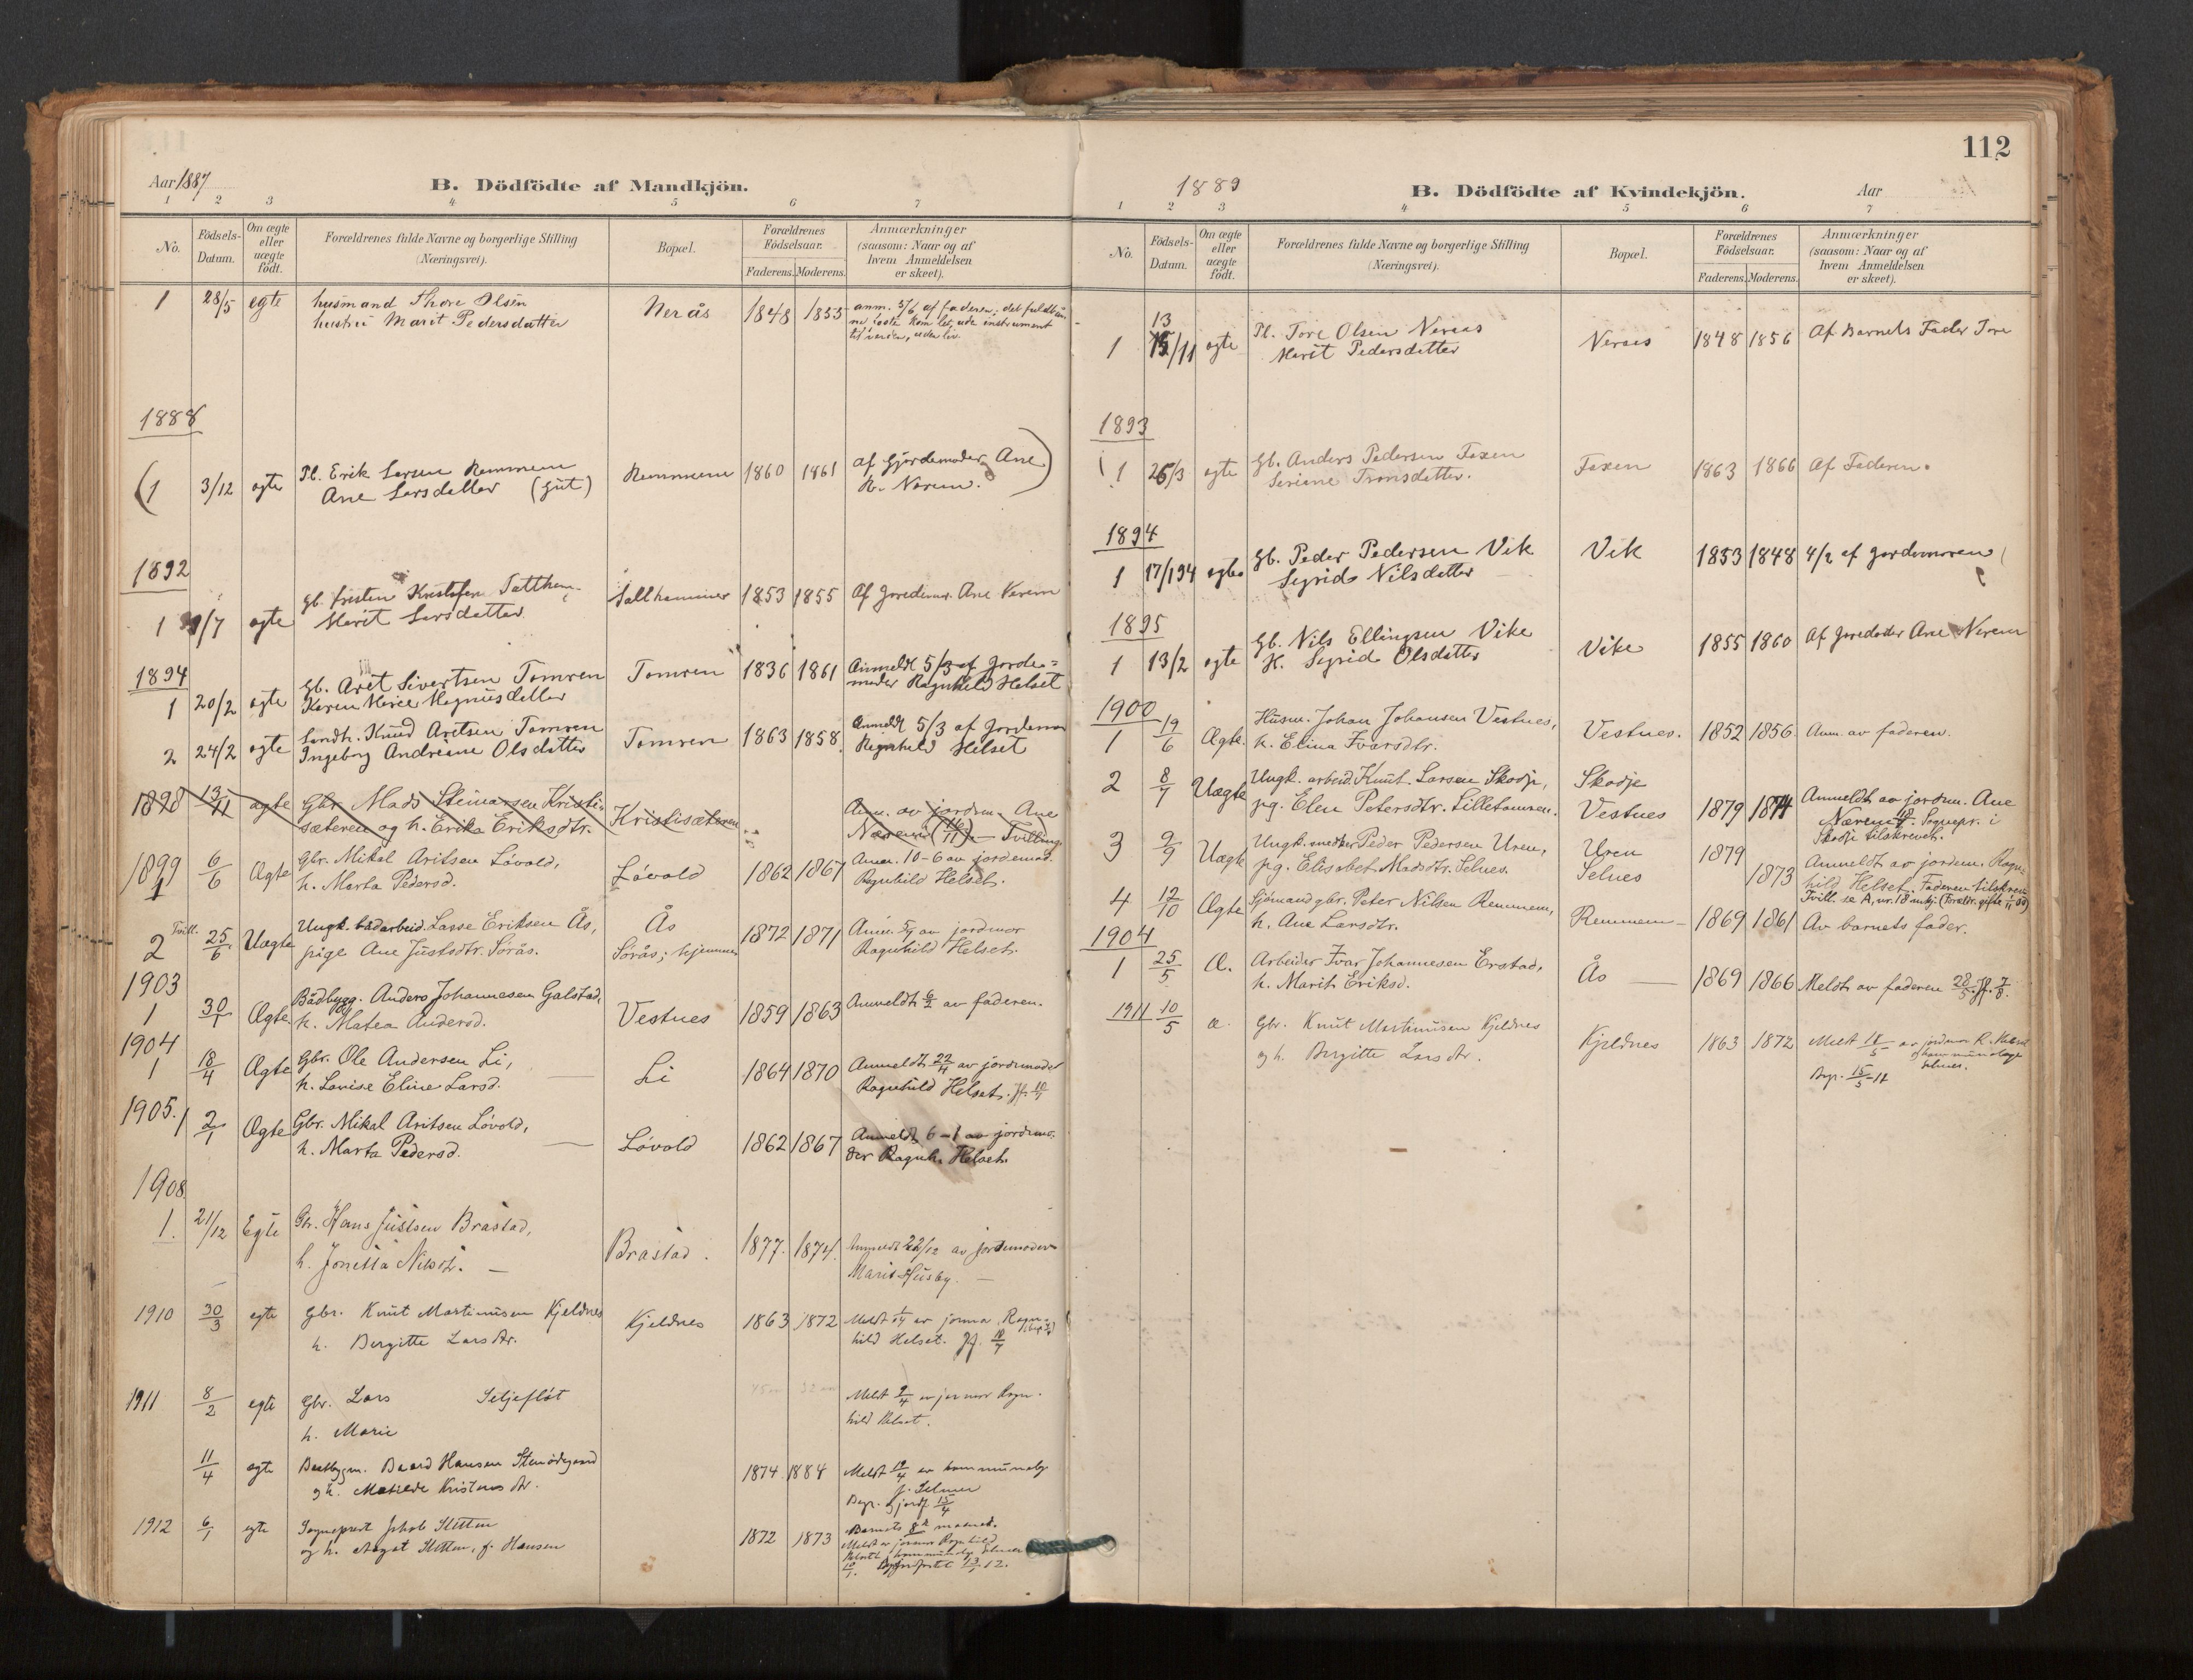 Aar 1887
B. Dödfödte af Mandkjön.
1 2 3 4 5 6 7
No.
Födsels-Datum.
Om ægte eller uægte födt.
Forældrenes fulde Navne og borgerlige Stilling (Næringsvei).
Bopæl.
Forældrenes Födselsaar.
Faderens. Moderens.
Anmærkninger (saasom: Naar og af hvem Anmeldelsen er skeet).
1 28/5 egte husmand Thore Olsen Nerås 1848 1855 anm. 5/6 af faderen, det fuldbaar-
hustru Marit Pedersdatter ne foste kom led. uden instrument
til verden, uden liv.
1888
(1 3/12 egte Pl. Erik Larsen Remmem Remmem 1860 1861 af Gjordemoder Ane)
Ane Larsdatter (gut) K. Nerem.
1892
Gb. Kristen Kristofersen Salthammer 1853 1855 Af Joredemor. Ane Nerem
1 /7 egte Marit Larsdatter
1894
Gb. Aret Sivertsen Tomren Tomren 1836 1861 Anmeldt 5/3 af Jorde-
1 20/2 egte Karen Marie Magnusdatter moder Ragnhild Helset
Landh. Knud Aretsen Tomren
2 24/2 egte Ingeborg Andreine Olsdatter Tomren 1863 1858 Anmeldt 5/3 af Jordemor
Ragnhild Helset
1898 13/11 ægte Gbr. Mads Steinarsen Kristi- Kristisæteren Anm. av jordm. Ane
sæteren og h. Erika Eriksdtr. Nærem (16/11) — Tvilling
1899
1 6/6 Ægte Gbr. Mikal Aritsen Lövold, Lövold 1862 1867 Anm. 10-6 av jordemod.
h. Marta Pedersd. Ragnhild Helset.
Tvill.
2 25/6 Uægte Ungk. bådarbeid. Lasse Eriksen Ås, Ås 1872 1871 Anm. av jordmor
pige Ane Justsdtr. Sörås. Sörås; hjemme Ragnhild Helset.
1903
1 30/1 Ægte Bådbygg. Anders Johannesen Galstad, Vestnes 1859 1863 Anmeldt 6/2 av faderen.
h. Matea Andersd.
1904
1 18/4 Ægte Gbr. Ole Andersen Li, — Li 1864 1870 Anmeldt 22/4 av jordemoder
h. Lovise Eline Larsd. Ragnhild Helset.
1905.
1 2/1 Ægte Gbr. Mikal Aritsen Lövold, — Lövold 1862 1867 Anmeldt 6-1 av jordmo-
h. Marta Pedersd. der Ragnh. Helset.
1908
1. 21/12 Egte Gbr. Hans Justsen Brastad, Brastad. 1877. 1874. Anmeldt 22/12 av jordemoder
h. Jonetta Nilsd. — Marit Husby. —
1910 30/3 egte Gbr. Knut Martinusen Kjeldnes Kjeldnes 1863 1872 Meldt 1/4 av jormor Ragn-
h. Bergitte Larsdtr. hild Helset. Jf. 10/4
1911 8/2 egte Gbr. Lars Seljeflot Meldt 9/4 av jormor Ragn-
h. Marie hild Helset.
11/4 egte Baatbygm. Baard Hansen Stenödegaard 1874 1884 Meldt 12/4 av kommunelæge
og h. Matilde Kristensdtr. J. Selmer
Begr. & jordf. 15/4
1912 6/1 egte Sogneprest Jakob Sletten 1872 1873 Barnets 8de maaned.
og h. Aagot Sletten, f. Hansen Meldt av jormor Ragnhild
Helset & kommunelæge Selmer
10/1. Begr. jordfestet 13/1 12.
112
1889
B. Dödfödte af Kvindekjön.
Aar
1 2 3 4 5 6 7
No.
Födsels-Datum.
Om ægte eller uægte födt.
Forældrenes fulde Navne og borgerlige Stilling (Næringsvei).
Bopæl.
Forældrenes Födselsaar.
Faderens. Moderens.
Anmærkninger (saasom: Naar og af hvem Anmeldelsen er skeet).
13
1 15/11 egte Pl. Tore Olsen Neraas Neraas 1848 1856 Af Barnets Fader Tore
Marit Pedersdatter
1893
1 25/3 egte Gb. Anders Pedersen Faxen Faxen 1863 1866 Af Faderen.
Seriane Tronsdatter.
1894
1 17/1 94 egte Gb. Peder Pedersen Vik Vik 1853 1848 4/2 af Jordemoren
Sigrid Nilsdatter
1895
1 13/2 egte Gb. Nils Ellingsen Vike Vike 1855 1860 Af Joredoder Ane Nerem
K. Sigrid Olsdatter
1900
1 19/6 Ægte. Husm. Johan Johansen Vestnes, Vestnes. 1852 1856 Anm. av faderen.
h. Elina Ivarsdtr.
2 8/7 Uægte Ungk. arbeid. Knut Larsen Skodje, Skodje
pg. Elen Petersdtr. Lilletomren. Vestnes 1879 1874 Anmeldt av jordm. Ane
Nærem Sognepr. i
Skodje tilskrevet.
3 9/9 Uægte Ungk. smed Peder Pedersen Uren, Uren 1879
pg. Elisabet Madsdtr. Selnes. Selnes 1873 Anmeldt av jordem. Ragn-
hild Helset. Faderen tilskrev.
Tvill. se A, nr. 18 mkj. (Foreldr. gifte 1/11 00)
4 12/10 Ægte Sjömand gbr. Peter Nilsen Remmem, Remmem 1869 1861 Av barnets fader.
h. Ane Larsdtr.
1904
1 25/5 Æ. Arbeider Ivar Johannesen Erstad, Ås — 1869 1866 Meldt av faderen 28/5. Jf. 7/8.
h. Marit Eriksd.
1911 10/5 æ. Gbr. Knut Martinusen Kjeldnes Kjeldnes 1863 1872 Meldt 18/5 av jordmor R. Helset
og h. Bergitte Larsdtr. & kommunelæge
Selmer.
Begr. 15/5-11